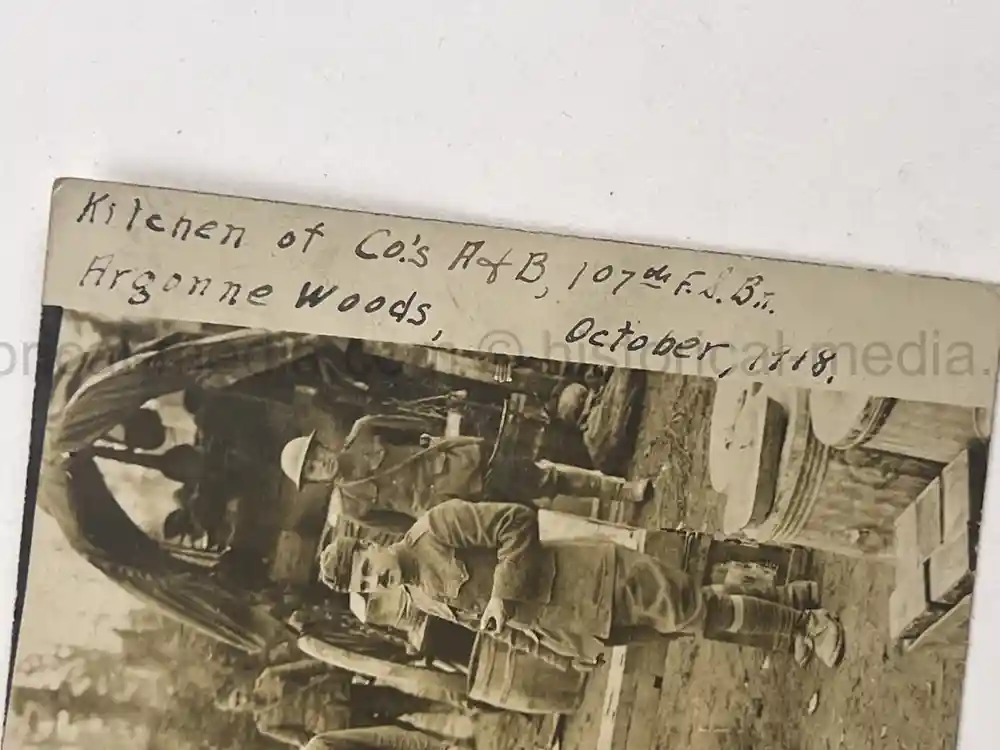 Kitchen of Co.'s A & B, 107th F.S. Bn.
Argonne Woods, October, 1918.
© historical-media.